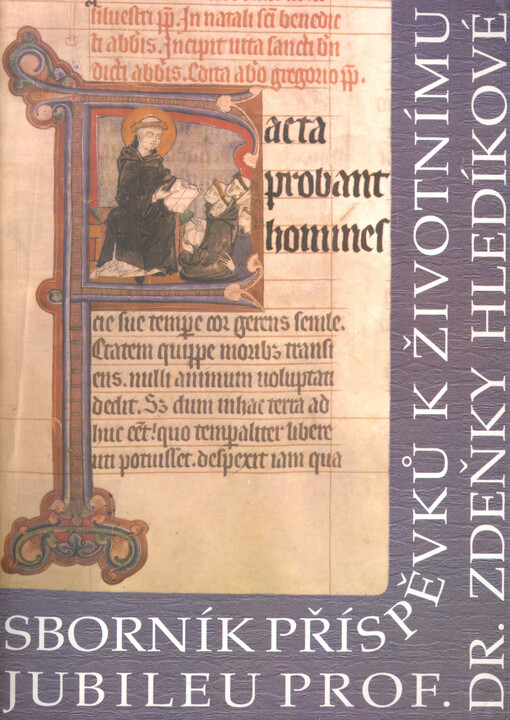 silvestri pp. In natali sci benedic
ti abbis. Incipit uita sancti bn
dicti abbis. Edita a bo gregorio pp.
acta
probant
homines
cie sue tempe cor gerens senile.
Etatem quippe moribz transi
ens. nulli animum uoluptati
dedit. Sz dum in hac terra ad
huc eet. quo tempaliter libere
uti potuisset. despexit iam qua
SBORNÍK PŘÍSPĚVKŮ K ŽIVOTNÍMU
JUBILEU PROF. DR. ZDEŇKY HLEDÍKOVÉ